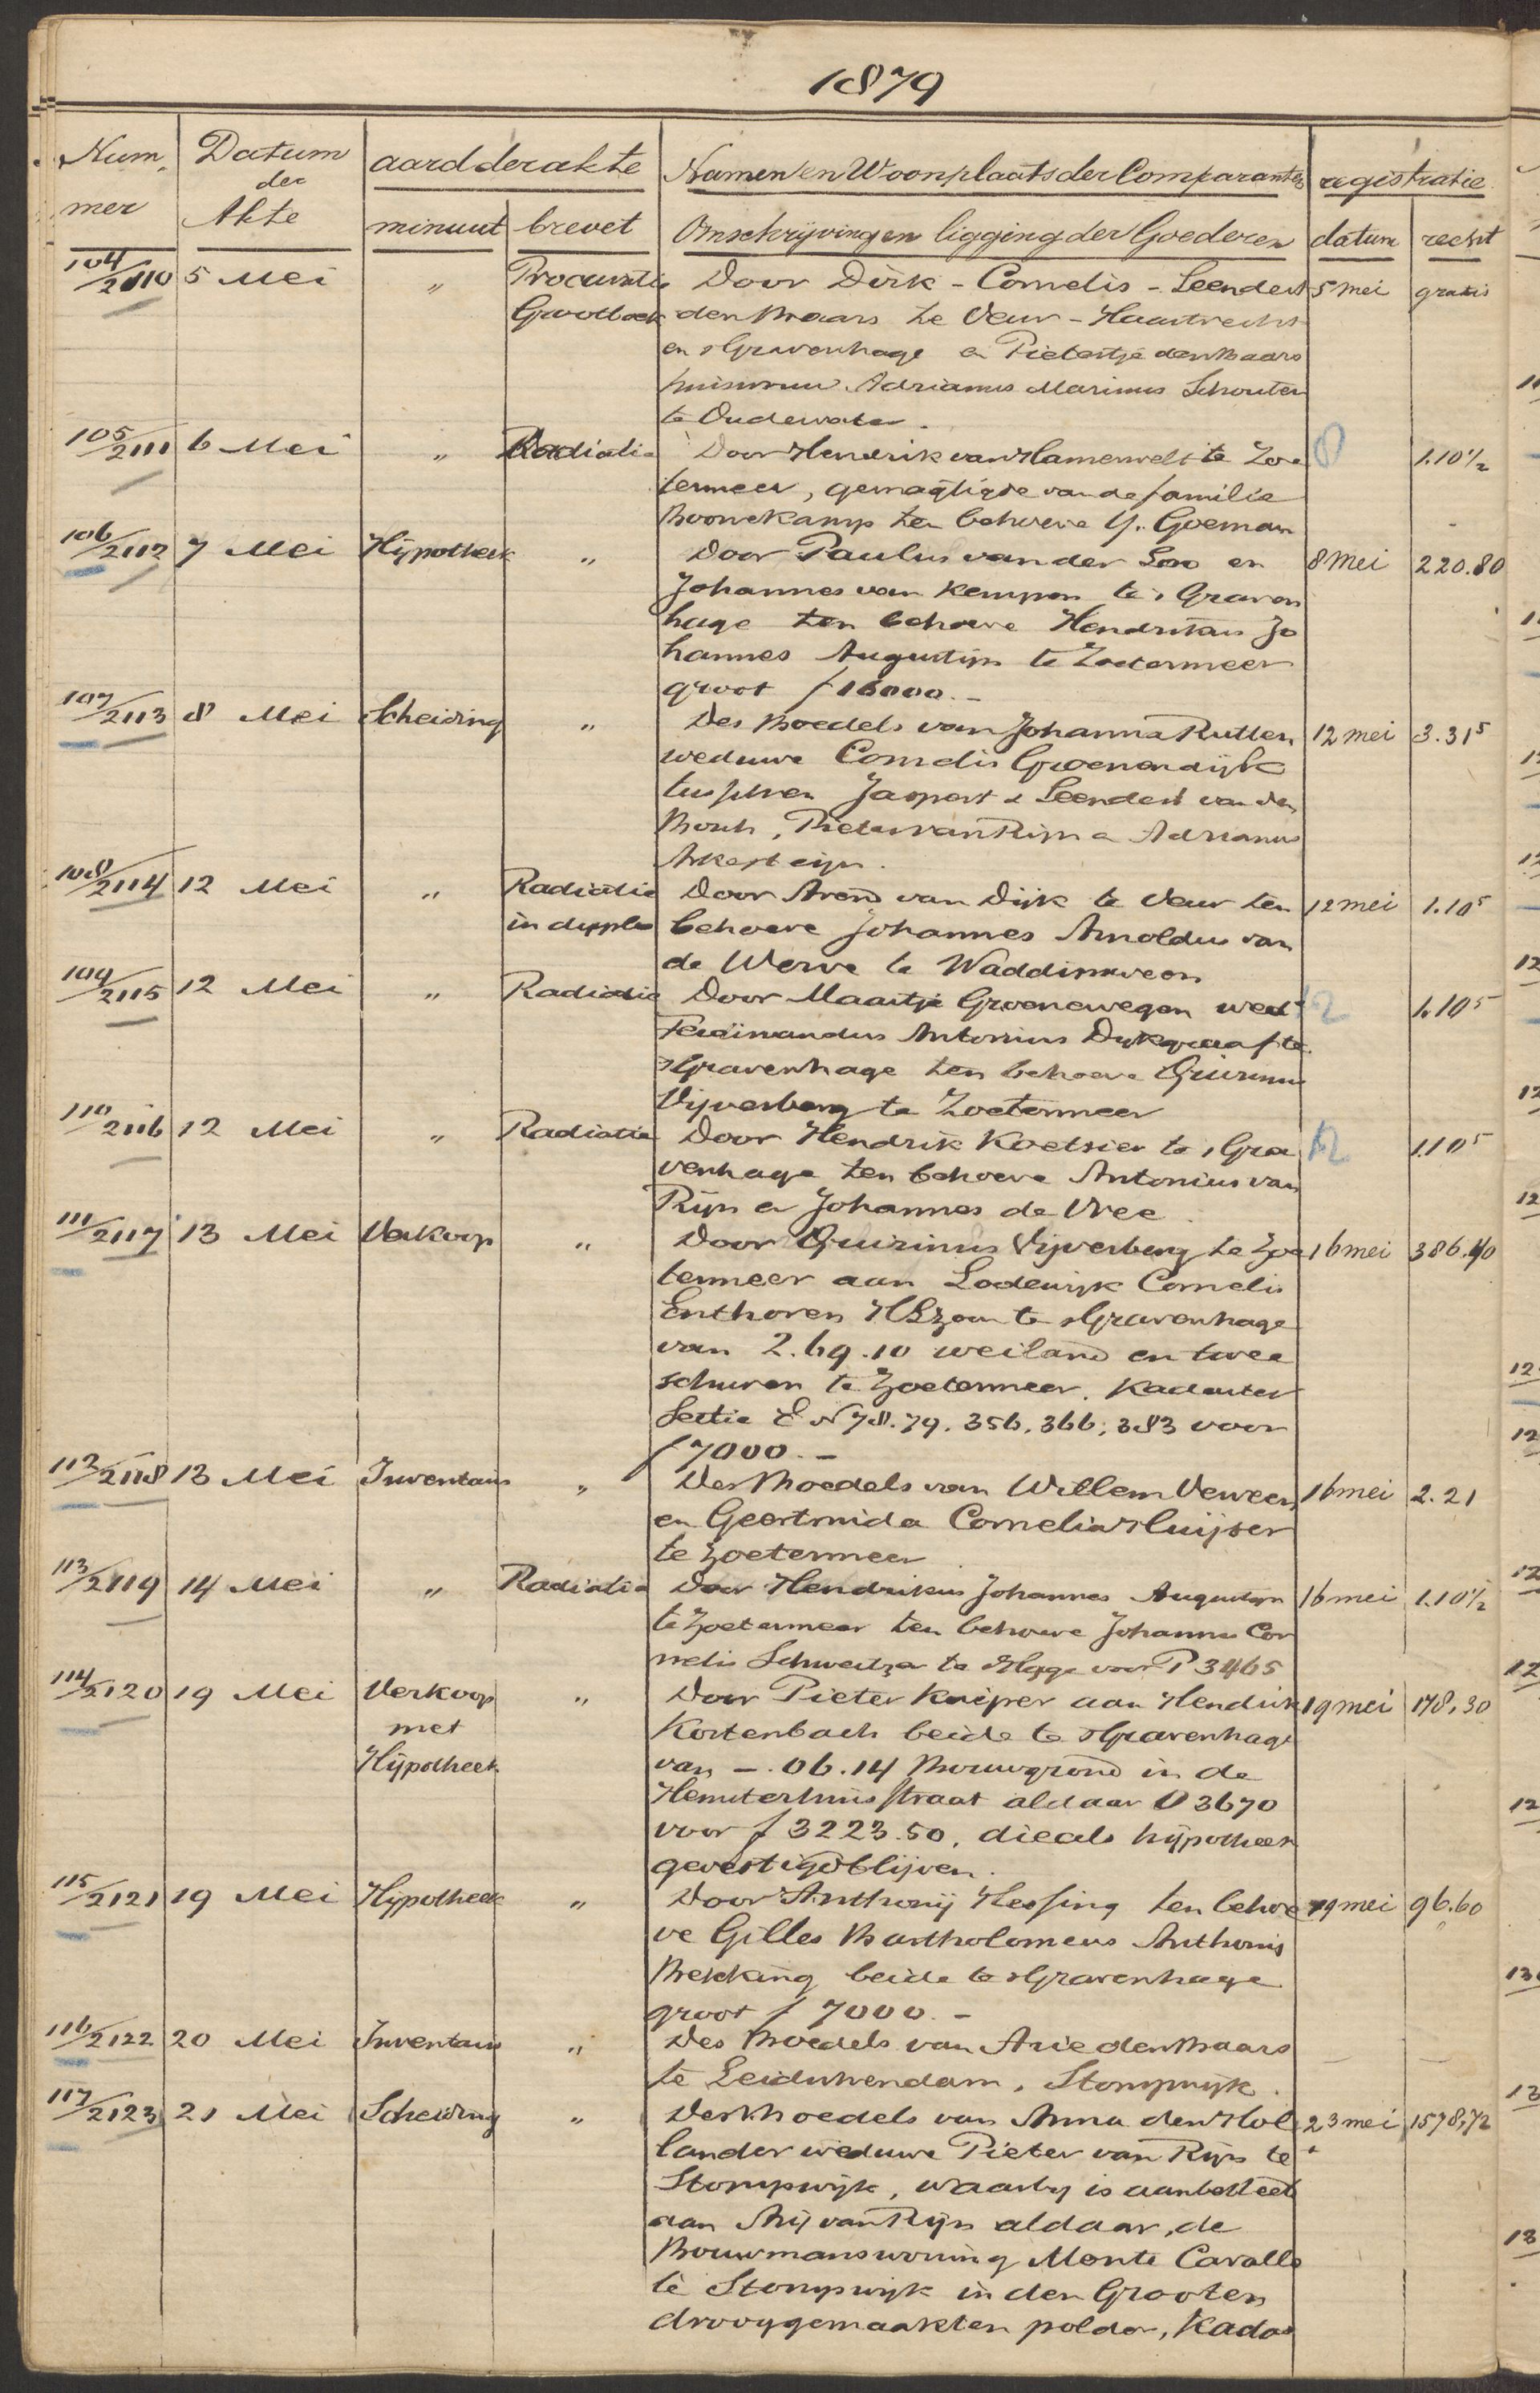 1879
Num, Datum aard der akte Namen en Woonplaats der Comparanten registratie
mer der Akte minuut brevet Omschrijving en ligging der Goederen datum recht
104/2110 5 Mei " Procuratie Door Dirk - Cornelis - Leendert 5 mei gratis
Grootboek den Baars te Veur - Haastrecht
en sGravenhage en Pietertje den Baars
huisvrouw Adrianus Marinus Schouten
te Oudewater.
105/2111 6 Mei " Radiatie Door Hendrik van Hamerveld te Zoe 8 1.10½
termeer, gemagtigde van de familie
Boonekamp ten behoeve G. Goeman
106/2112 7 Mei Hypotheek " Door Paulus van der Loo en 8 Mei 220.80
Johannes van Kempen te sGraven
hage ten behoeve Hendrikus Jo
hannes Augustijn te Zoetermeer
groot f 16000.-
107/2113 8 Mei Scheiding " Des Boedels van Johanna Rutten 12 mei 3.31⁵
weduwe Cornelis Groenendijk
tusschen Jaspert & Leendert van den
Bosch, Pieter van Rijn & Adrianus
Ankersteijn.
108/2114 12 Mei " Radiatie Door Arend van Dijk te Veur ten 12 mei 1.10⁵
in duplo behoeve Johannes Arnoldus van
de Werve te Waddinxveen
109/2115 12 Mei " Radiatie Door Maartje Groenewegen wed 12 1.10⁵
Ferdinandus Antonius Dijkgraaf te
sGravenhage ten behoeve Quirinus
Vijverberg te Zoetermeer
110/2116 12 Mei " Radiatie Door Hendrik Koetsier te sGra 12 1.10⁵
venhage ten behoeve Antonius van
Rijn en Johannes de Vree.
111/2117 13 Mei Verkoop " Door Quirinus Vijverberg te Zoe 16 mei 386.40
termeer aan Lodewijk Cornelis
Enthoven HLzoon te sGravenhage
van 2.69.10 weiland en twee
schuren te Zoetermeer. Kadaster
Sectie E N 78.79.356.366.383 voor
f 7000.-
112/2118 13 Mei Inventaris " Des Boedels van Willem Verveen 16 mei 2.21
en Geertruida Cornelia Huijser
te Zoetermeer
113/2119 14 Mei " Radiatie Door Hendrikus Johannes Augustijn 16 mei 1.10½
te Zoetermeer ten behoeve Johannes Cor
nelis Schweitzer te sHage voor P 3465
114/2120 19 Mei Verkoop " Door Pieter Kuiper aan Hendrik 19 mei 178,30
met Kortenbach beide te sGravenhage
Hypotheek van -.06.14 Bouwgrond in de
Hemsterhuisstraat aldaar O 3670
voor f 3223.50, die als hypotheek
gevestigd blijven.
115/2121 19 Mei Hypotheek " Door Anthonij Hessing ten behoe 19 mei 96.60
ve Gilles Bartholomeus Anthonij
Brekking beide te sGravenhage
groot f 7000.-
116/2122 20 Mei Inventaris " Des Boedels van Arie den Baars — —
te Leidschendam, Stompwijk.
117/2123 21 Mei Scheiding " Des Boedels van Anna den Hol 23 mei 1578,72
lander weduwe Pieter van Rijn te
Stompwijk, waarbij is aanbesteed
aan Arij van Rijn aldaar, de
Bouwmanswoning Monte Cavallo
te Stompwijk in den Grooten
drooggemaakten polder, Kadas